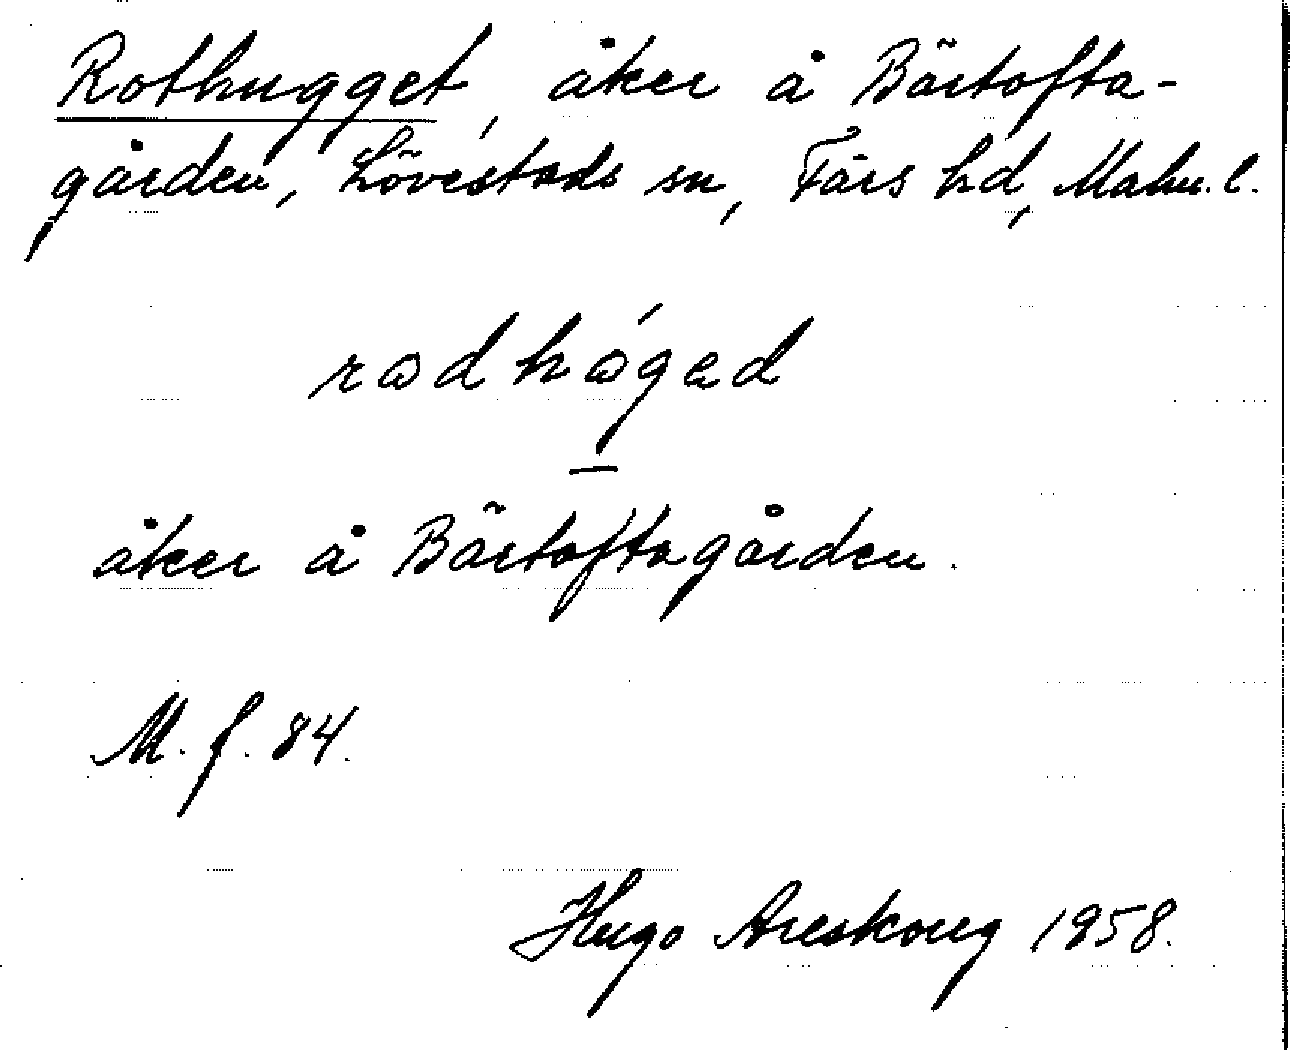 Rothugget, åker å Bärtofta-
gården, Lövestads sn, Färs hd, Malm. l.
rodhógad
åker å Bärtoftagården.
M. f. 84.
Hugo Areskoug 1958.